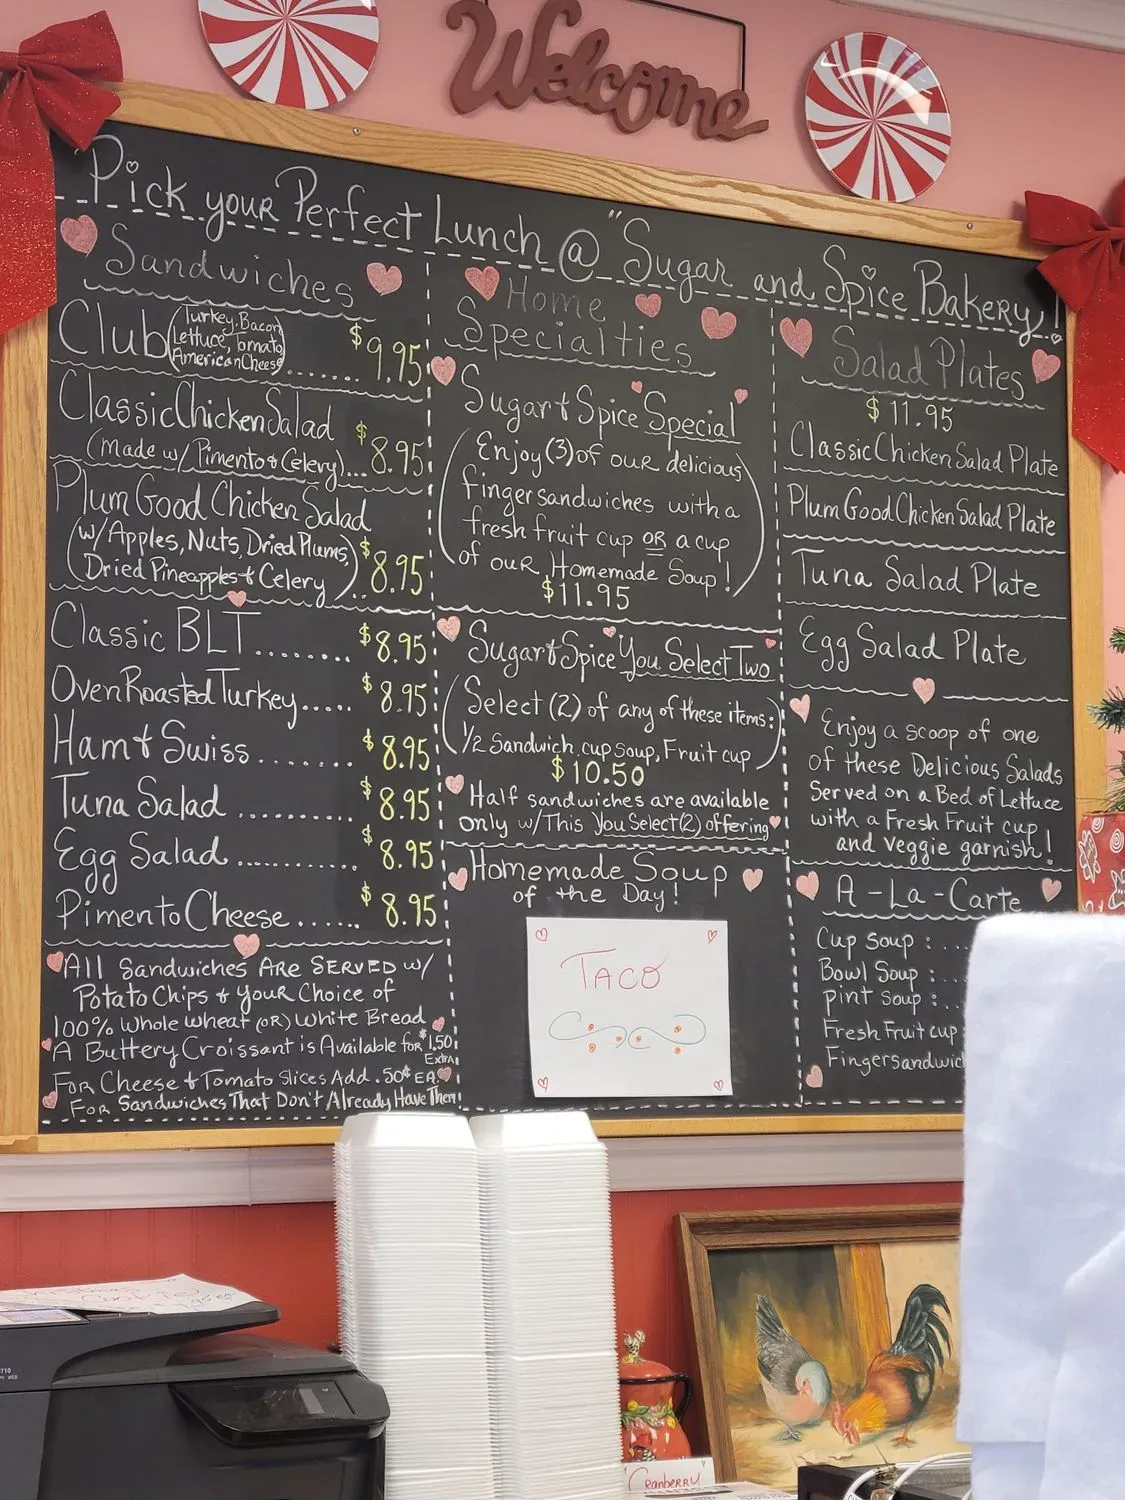 Welcome
Pick your Perfect Lunch @ "Sugar and Spice Bakery!
Sandwiches
Club (Turkey, Bacon
Lettuce, Tomato
American Cheese)....... $9.95
Classic Chicken Salad
(Made w/ Pimento & Celery)... $8.95
Plum Good Chicken Salad
(w/ Apples, Nuts, Dried Plums,
Dried Pineapples & Celery).. $8.95
Classic BLT........ $8.95
Oven Roasted Turkey..... $8.95
Ham & Swiss........ $8.95
Tuna Salad .......... $8.95
Egg Salad ........... $8.95
Pimento Cheese...... $8.95
All Sandwiches Are Served w/
Potato Chips & Your Choice of
100% Whole Wheat (or) White Bread
A Buttery Croissant is Available for $1.50
Extra
For Cheese & Tomato Slices Add .50¢ EA.
For Sandwiches That Don't Already Have Them
Home
Specialties
Sugar & Spice Special
(Enjoy (3) of our delicious
fingersandwiches with a
fresh fruit cup OR a cup
of our Homemade Soup!)
$11.95
Sugar & Spice You Select Two
(Select (2) of any of these items:
1/2 Sandwich, cup soup, Fruit cup)
$10.50
Half sandwiches are available
only w/ This You Select (2) offering
Homemade Soup
of the Day!
Taco
Salad Plates
$11.95
Classic Chicken Salad Plate
Plum Good Chicken Salad Plate
Tuna Salad Plate
Egg Salad Plate
Enjoy a scoop of one
of these Delicious Salads
Served on a Bed of Lettuce
with a Fresh Fruit cup
and veggie garnish!
A-La-Carte
Cup Soup: ...
Bowl Soup: ..
pint Soup: ..
Fresh Fruit cup
Fingersandwic
Cookies
Cranberry